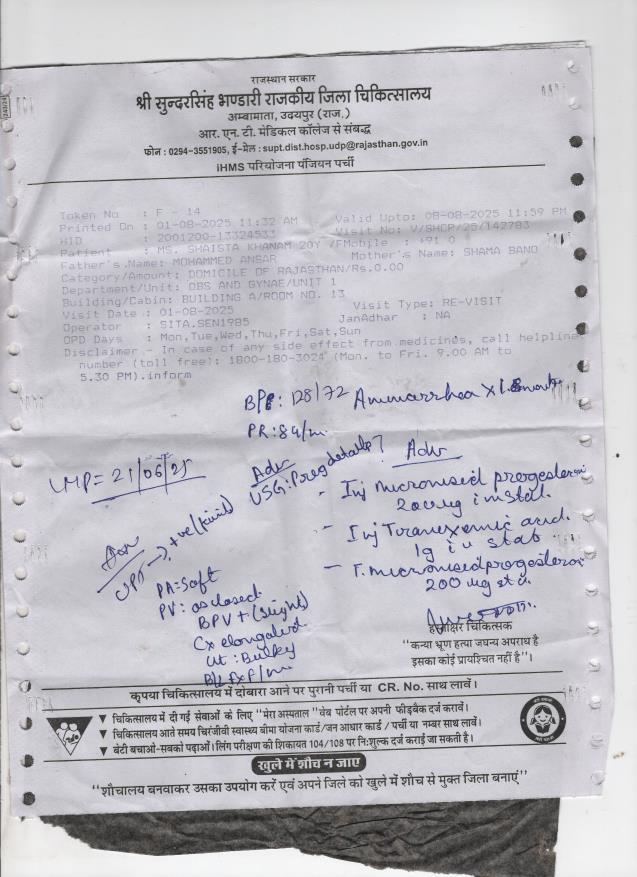 राजस्थान सरकार
श्री सुन्दरसिंह भण्डारी राजकीय जिला चिकित्सालय
अम्बामाता, उदयपुर (राज.)
आर. एन. टी. मेडिकल कॉलेज से संबद्ध
फोन : 0294-3551905, ई-मेल : supt.dist.hosp.udp@rajasthan.gov.in
iHMS परियोजना पंजियन पर्ची
Token No : F - 14
Printed On : 01-08-2025 11:32 AM Valid Upto: 08-08-2025 11:59 PM
HID : 2001200-13324533 Visit No: V/SHCP/25/142783
Patient : MS. SHAISTA KHANAM 20Y /FMobile : +91 0
Father's Name: MOHAMMED ANSAR Mother's Name: SHAMA BANO
Category/Amount: DOMICILE OF RAJASTHAN/Rs.0.00
Department/Unit: OBS AND GYNAE/UNIT 1
Building/Cabin: BUILDING A/ROOM NO. 13
Visit Date : 01-08-2025 Visit Type: RE-VISIT
Operator : SITA.SEN1985 JanAdhar : NA
OPD Days : Mon,Tue,Wed,Thu,Fri,Sat,Sun
Disclaimer - In case of any side effect from medicines, call helpline
number (toll free): 1800-180-3024 (Mon. to Fri. 9.00 AM to
5.30 PM).inform
BP: 128/72 Ammarrhea x 1.5
PR: 84/m
LMP = 21/06/25
Adv
USG: Preg details?
Adv
- Inj micronised progesteron
200 mg im stat.
- Inj Tranexamic acid.
1g iv stat
- T. micronised progesteron
200 mg
UPT → +ve (kind)
PA = Soft
PV: os closed
BPV + (slight)
Cx elongated
Ut : Bulky
B/L Fx F/
हस्ताक्षर चिकित्सक
"कन्या भ्रूण हत्या जघन्य अपराध है
इसका कोई प्रायश्चित नहीं है"।
कृपया चिकित्सालय में दोबारा आने पर पुरानी पर्ची या CR. No. साथ लावें।
▼ चिकित्सालय में दी गई सेवाओं के लिए "मेरा अस्पताल" वेब पोर्टल पर अपनी फीडबैक दर्ज करावें।
▼ चिकित्सालय आते समय चिरंजीवी स्वास्थ्य बीमा योजना कार्ड/जन आधार कार्ड / पर्ची या नम्बर साथ लावें।
▼ बेटी बचाओ-सबको पढ़ाओ। लिंग परीक्षण की शिकायत 104/108 पर निःशुल्क दर्ज कराई जा सकती है।
खुले में शौच न जाए
"शौचालय बनवाकर उसका उपयोग करें एवं अपने जिले को खुले में शौच से मुक्त जिला बनाएं"